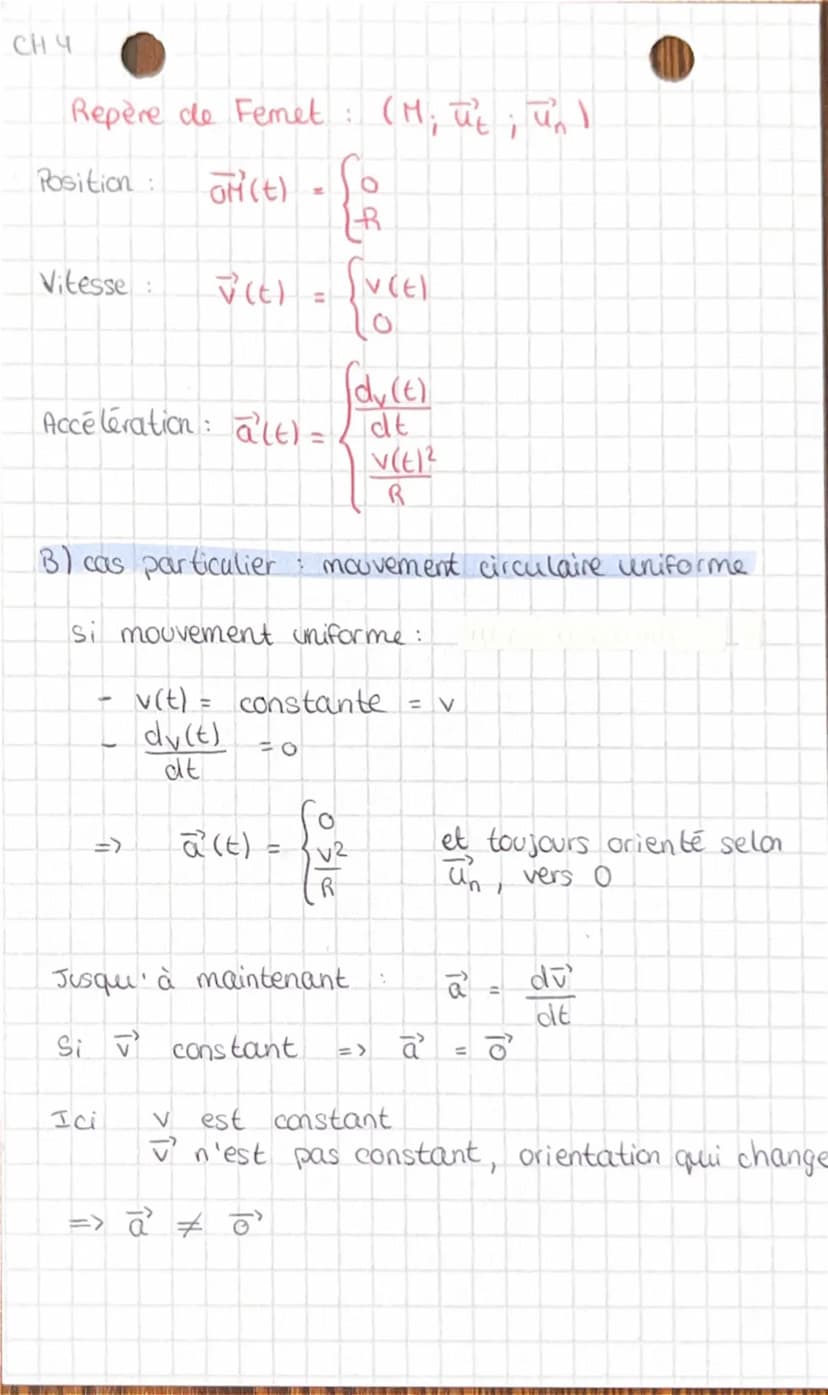 CH 4
Repère de Fernet : (M; u⃗t ; u⃗n)
Position : OM⃗(t) = { 0
-R
Vitesse : v⃗(t) = { v(t)
0
Accélération : a⃗(t) = { dv(t)/dt
v(t)²/R
B) cas particulier : mouvement circulaire uniforme
si mouvement uniforme :
- v(t) = constante = v
- dv(t)/dt = 0
=> a⃗(t) = { 0
v²/R
et toujours orienté selon
u⃗n, vers O
Jusqu'à maintenant : a⃗ = dv⃗/dt
Si v⃗ constant => a⃗ = 0⃗
Ici v est constant
v⃗ n'est pas constant, orientation qui change
=> a⃗ ≠ 0⃗